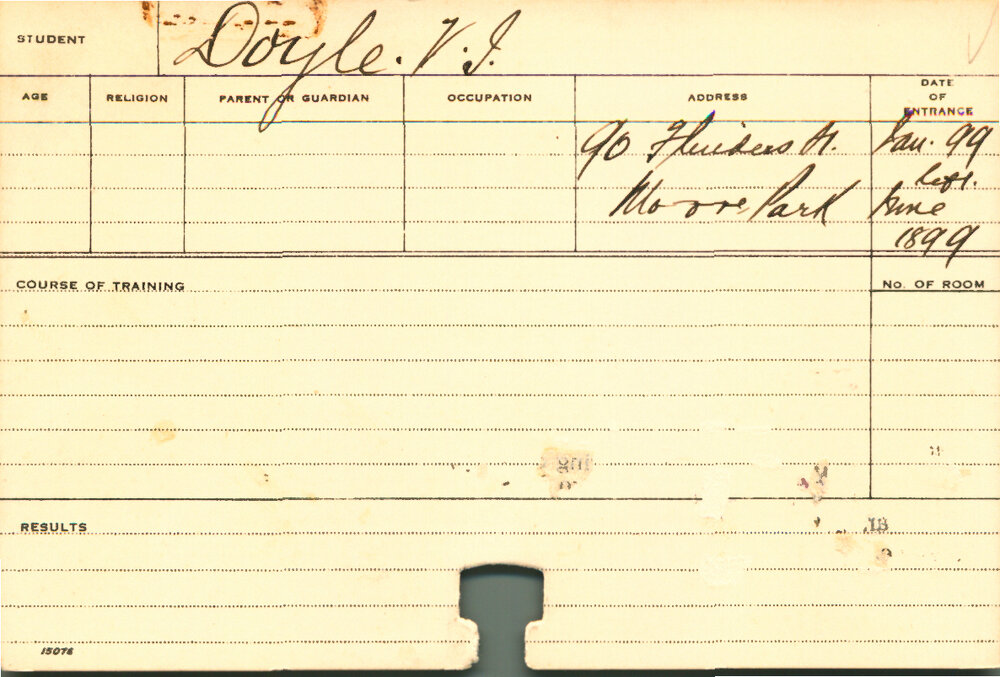 STUDENT
Doyle. V. J.
AGE
RELIGION
PARENT OR GUARDIAN
OCCUPATION
ADDRESS
DATE
OF
ENTRANCE
90 Flinders St. Jan. 99
left.
Moore Park June
1899
COURSE OF TRAINING
No. OF ROOM
RESULTS
15076